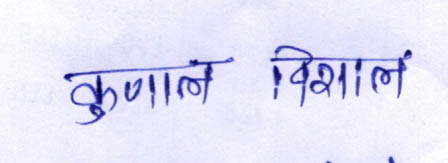 कुणाल विशाल